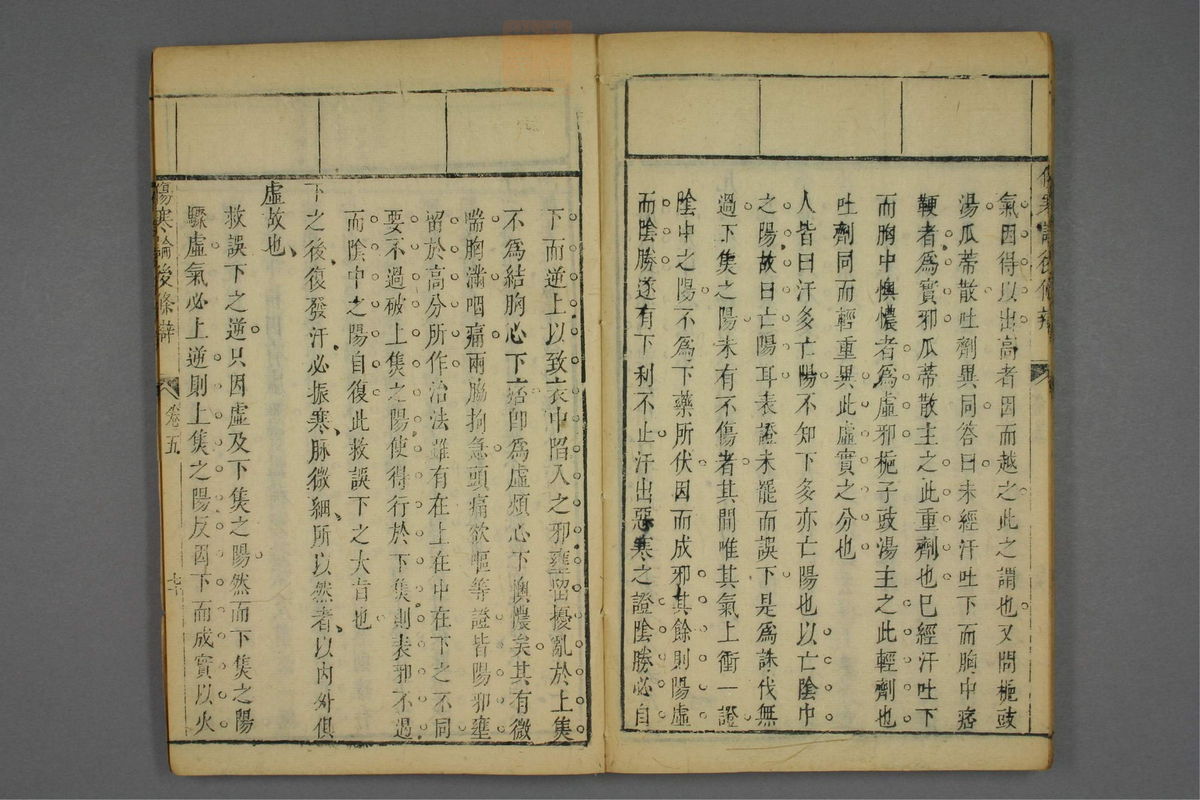 氣因得以出高者因而越之此之謂也又問梔豉
湯瓜蒂散吐劑異同答曰未經汗吐下而胸中痞
鞕者爲實邪瓜蒂散主之此重劑也已經汗吐下
而胸中懊憹者爲虛邪梔子豉湯主之此輕劑也
吐劑同而輕重異此虛實之分也
人皆曰汗多亡陽不知下多亦亡陽也以亡陰中
之陽故曰亡陽耳表證未罷而誤下是爲誅伐無
過下焦之陽未有不傷者其間唯其氣上衝一證
陰中之陽不爲下藥所伏因而成邪其餘則陽虛
而陰勝遂有下利不止汗出惡寒之證陰勝必自
下而逆上以致衣中陷入之邪壅留擾亂於上焦
不爲結胸心下痞卽爲虛煩心下懊憹矣其有微
喘胸滿咽痛兩脇拘急頭痛欲嘔等證皆陽邪壅
留於高分所作治法雖有在上在中在下之不同
要不過破上焦之陽使得行於下焦則表邪不遏
而陰中之陽自復此救誤下之大旨也
下之後復發汗必振寒脉微細所以然者以內外俱
虛故也
救誤下之逆只因虛及下焦之陽然而下焦之陽
驟虛氣必上逆則上焦之陽反因下而成實以火
傷寒論後條辯
卷五
七